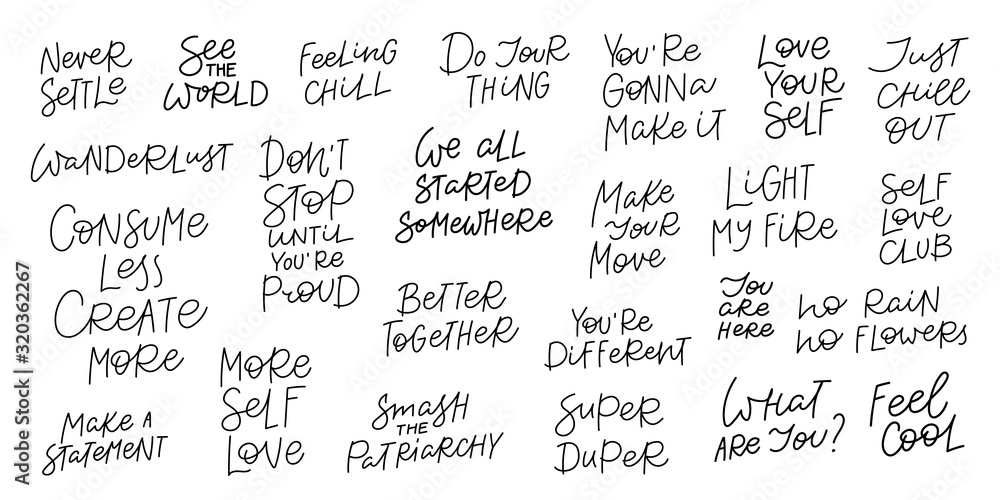 Never
Settle
See
THE
World
Feeling
Chill
Do Your
Thing
You're
Gonna
Make it
Love
Your
Self
Just
Chill
Out
Wanderlust
Don't
Stop
until
you're
Proud
We all
started
somewhere
Make
your
Move
Light
My Fire
Self
Love
Club
Consume
Less
Create
More
Better
Together
You're
Different
You
are
here
no Rain
no Flowers
Make a
statement
More
Self
Love
Smash
THE
Patriarchy
Super
Duper
What
are you?
Feel
Cool
Adobe Stock | #320362267